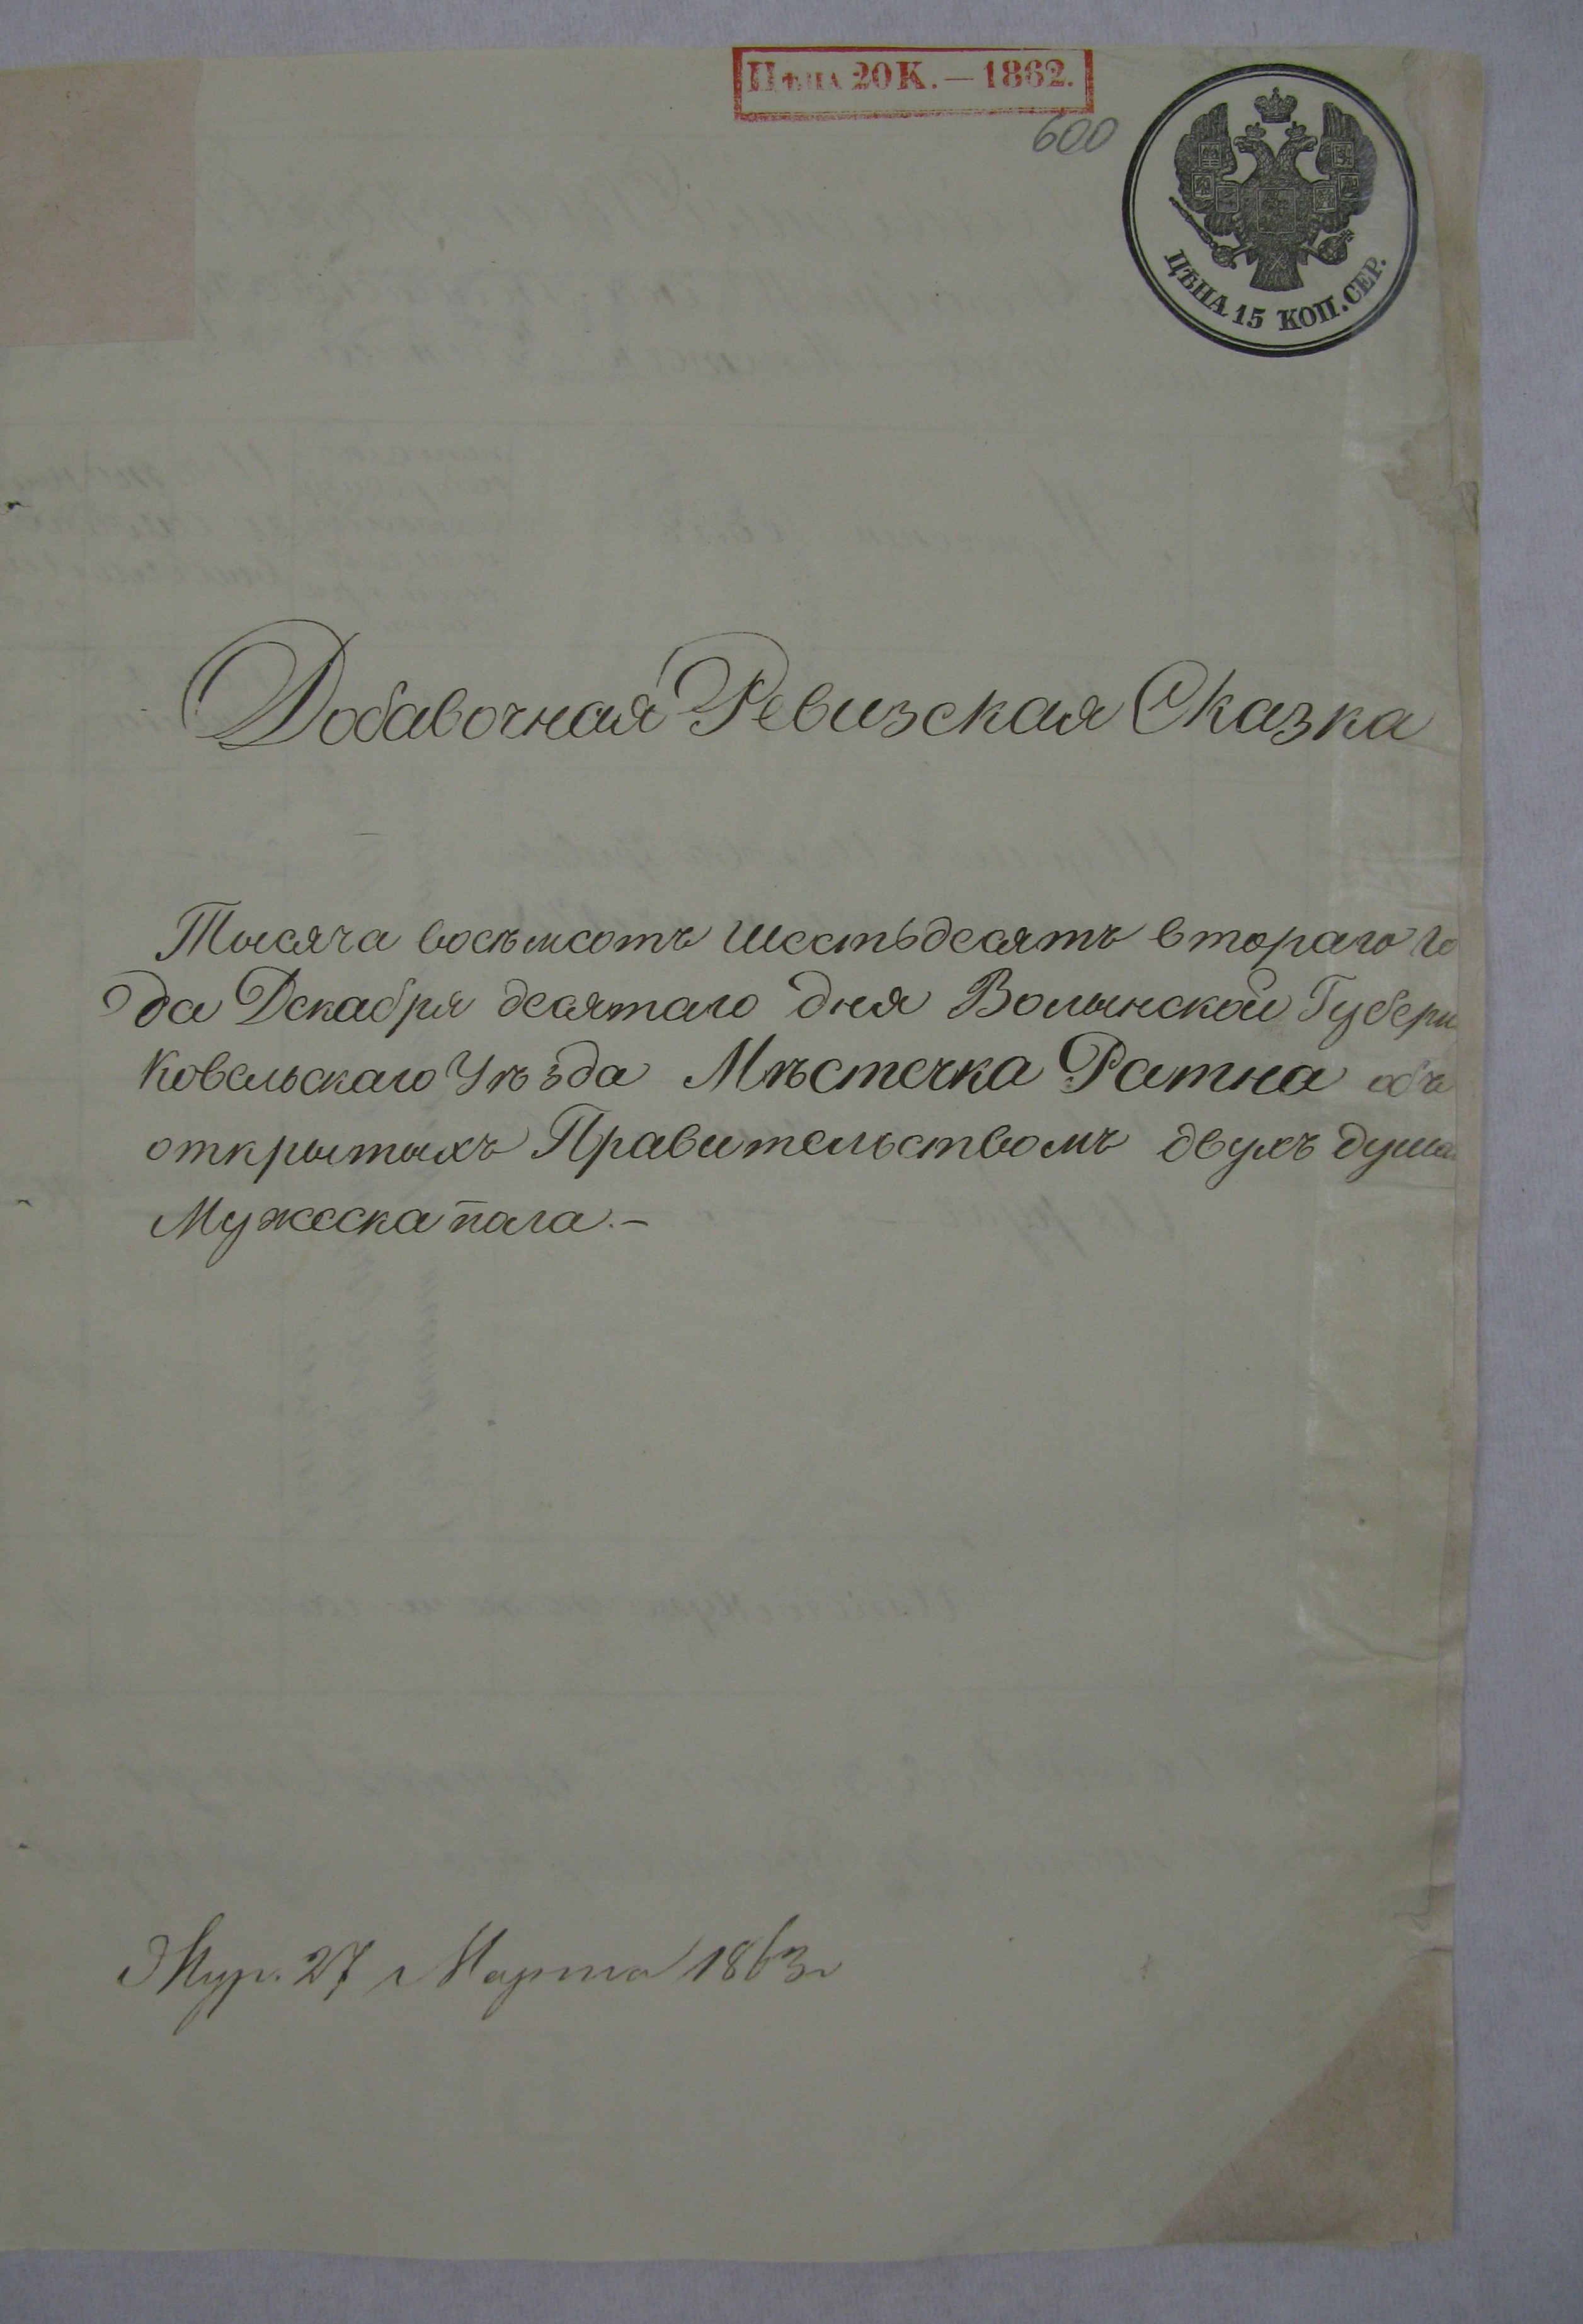 Цѣна 20 К. — 1862.
600
ЦѢНА 15 КОП. СЕР.
Добавочная Ревизская Сказка
Тысяча восъмсотъ шестьдесятъ втораго Го
да Декабря десятаго дня Волынской Губерн
Ковельскаго Уѣзда Мѣстечка Ратна объ
открытыхъ Правительствомъ двухъ душа
Мужеска пола. —
Жур. 27 Марта 1863 г